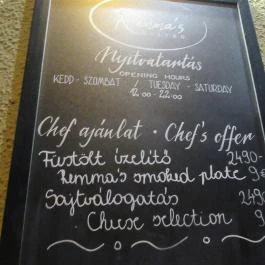 Nyitvatartás
OPENING HOURS
KEDD - SZOMBAT / TUESDAY - SATURDAY
12:00 - 22:00
Chef ajánlat · Chef's offer
Füstölt ízelítő 2490-
Remma's smoked plate 9€
Sajtválogatás 249
Cheese selection 9